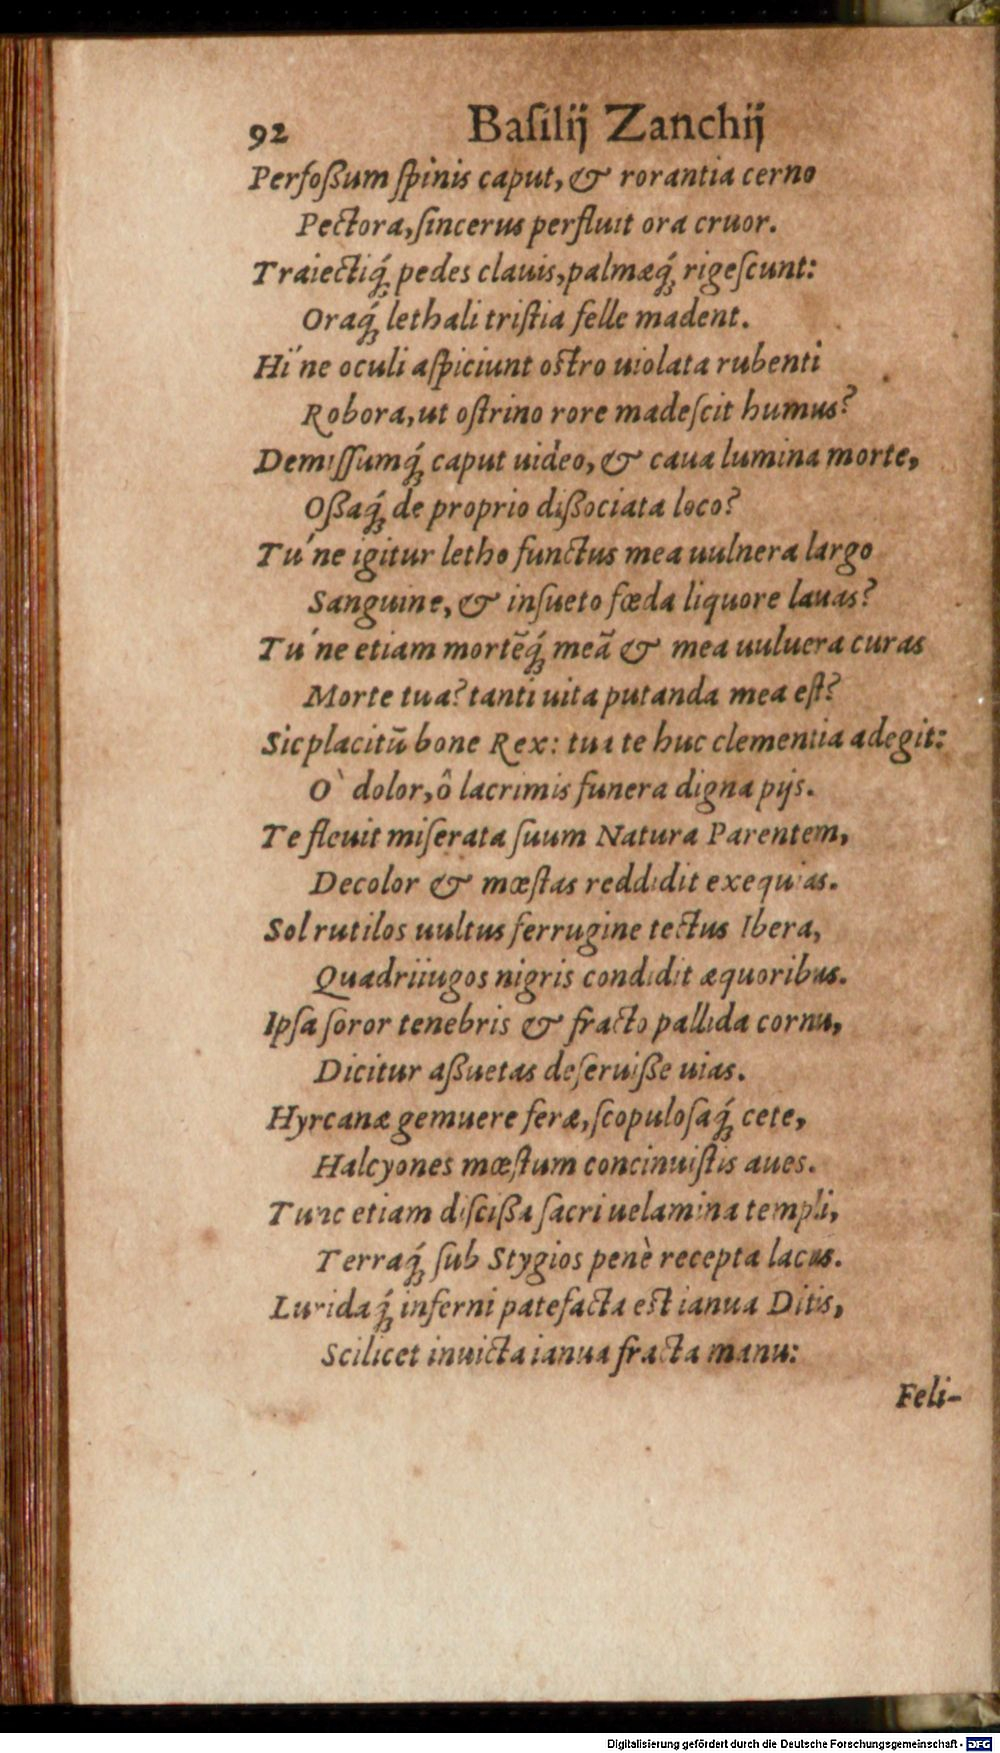 92 Baſilij Zanchij
Perfoßum ſpinis caput, & rorantia cerno
Pectora, ſincerus perfluit ora cruor.
Traiectiq́; pedes clauis, palmæq́; rigeſcunt:
Oraq́; lethali triſtia felle madent.
Hí ne oculi aſpiciunt oſtro uiolata rubenti
Robora, ut oſtrino rore madeſcit humus?
Demiſſumq́; caput uideo, & caua lumina morte,
Oßaq́; de proprio dißociata loco?
Tú ne igitur letho functus mea uulnera largo
Sanguine, & inſueto fœda liquore lauas?
Tú ne etiam mortēq́; meā & mea uuluera curas
Morte tua? tanti uita putanda mea eſt?
Sic placitū bone Rex: tua te huc clementia adegit:
O` dolor, ô lacrimis funera digna pijs.
Te fleuit miſerata ſuum Natura Parentem,
Decolor & mœſtas reddidit exequias.
Sol rutilos uultus ferrugine tectus Ibera,
Quadriiugos nigris condidit æquoribus.
Ipſa ſoror tenebris & fracto pallida cornu,
Dicitur aßuetas deſeruiße uias.
Hyrcanæ gemuere feræ, ſcopuloſaq́; cete,
Halcyones mœſtum concinuiſtis aues.
Tunc etiam diſcißa ſacri uelamina templi,
Terraq́; ſub Stygios penè recepta lacus.
Luridaq́; inferni patefacta eſt ianua Ditis,
Scilicet inuicta ianua fracta manu:
Feli-
Digitalisierung gefördert durch die Deutsche Forschungsgemeinschaft - DFG